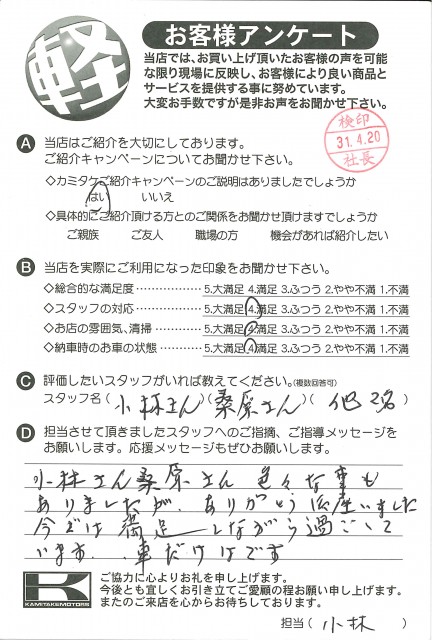 軽
お客様アンケート
当店では、お買い上げ頂いたお客様の声を可能
な限り現場に反映し、お客様により良い商品と
サービスを提供する事に努めています。
大変お手数ですが是非お声をお聞かせ下さい。
検印
31.4.20
社長
A 当店はご紹介を大切にしております。
ご紹介キャンペーンについてお聞かせ下さい。
◇カミタケご紹介キャンペーンのご説明はありましたでしょうか
はい いいえ
◇具体的にご紹介頂ける方とのご関係をお聞かせ頂けますでしょうか
ご親族 ご友人 職場の方 機会があれば紹介したい
B 当店を実際にご利用になった印象をお聞かせ下さい。
◇総合的な満足度 5.大満足 4.満足 3.ふつう 2.やや不満 1.不満
◇スタッフの対応 5.大満足 4.満足 3.ふつう 2.やや不満 1.不満
◇お店の雰囲気、清掃 5.大満足 4.満足 3.ふつう 2.やや不満 1.不満
◇納車時のお車の状態 5.大満足 4.満足 3.ふつう 2.やや不満 1.不満
C 評価したいスタッフがいれば教えてください。(複数回答可)
スタッフ名(小林さん)(桑原さん)(他)
D 担当させて頂きましたスタッフへのご指摘、ご指導メッセージを
お願いします。応援メッセージもぜひお願いします。
小林さん桑原さん 色々な事も
ありましたが、ありがとう御座いました
今では満足しながら過ごして
います。車だけはです
K
KAMITAKEMOTORS
ご協力に心よりお礼を申し上げます。
今後とも宜しくお引き立てご愛顧の程お願い申し上げます。
またのご来店を心からお待ちしております。
担当(小林)